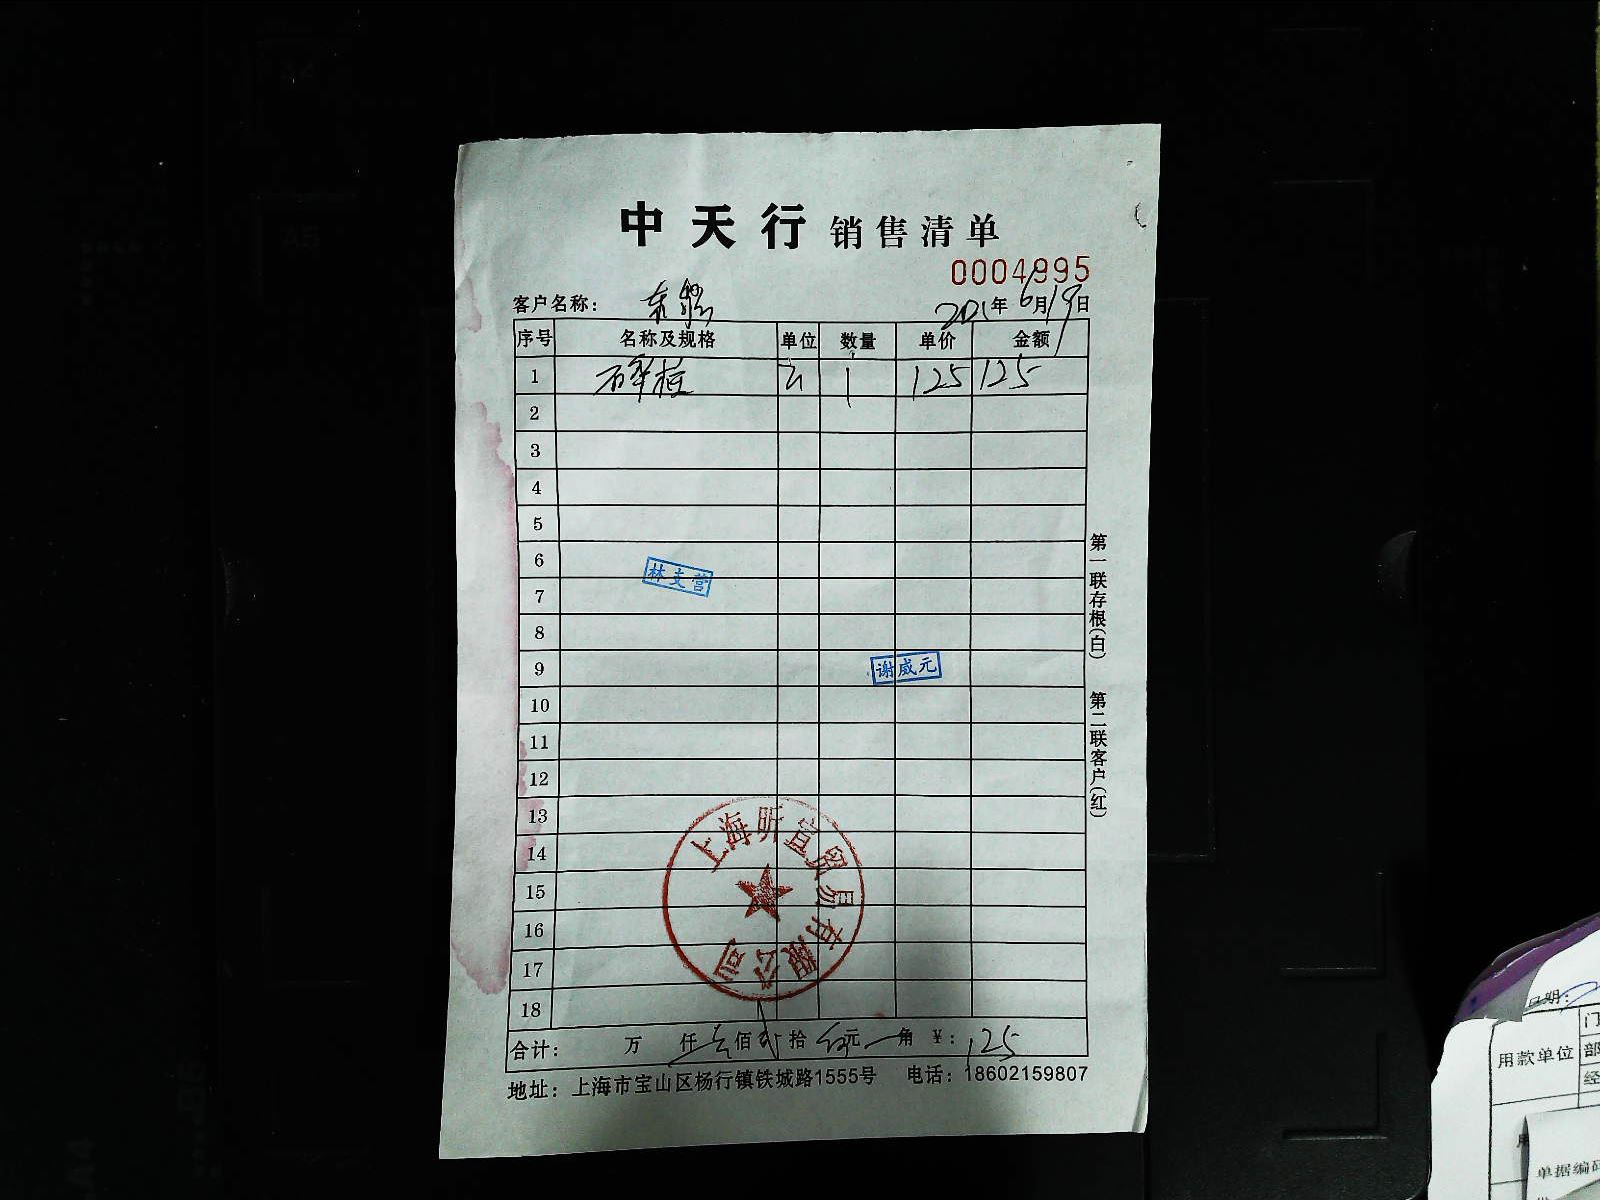 中天行 销售清单
0004995
客户名称：
年 6月19日
序号 名称及规格 单位 数量 单价 金额
1 1 125 125
2
3
4
5
6
林支营
7
8
9
谢威元
10
11
12
13
14
15
16
17
18
上海昕宣贸易有限公司
合计： 万 仟 壹佰 贰拾 伍元 角 ￥：125
地址：上海市宝山区杨行镇铁城路1555号 电话：18602159807
第一联存根(白) 第二联客户(红)
日期：
用款单位
单据编码